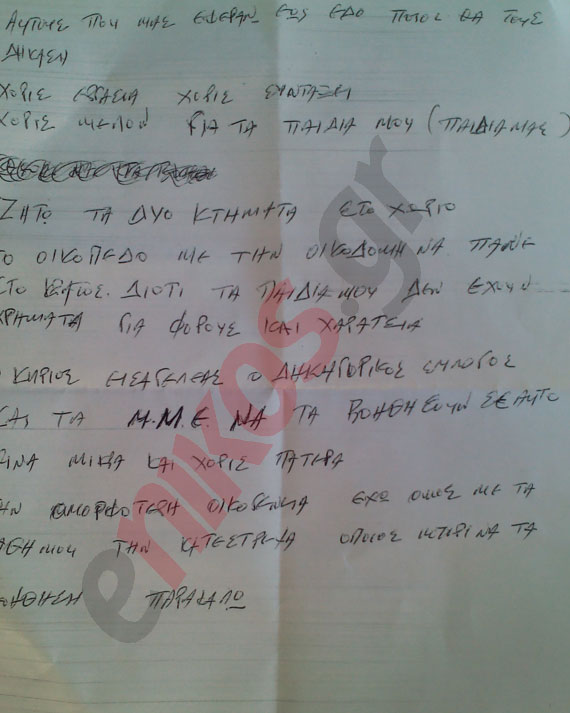 ΑΥΤΟΥΣ ΠΟΥ ΜΑΣ ΕΦΕΡΑΝ ΕΩΣ ΕΔΟ ΠΟΙΟΣ ΘΑ ΤΟΥΣ
ΔΗΚΑΣΗ
ΧΟΡΙΣ ΕΡΓΑΣΙΑ ΧΟΡΙΣ ΣΥΝΤΑΞΗ
ΧΟΡΙΣ ΜΕΛΟΝ ΓΙΑ ΤΑ ΠΑΙΔΙΑ ΜΟΥ (ΠΑΙΔΙΑ ΜΑΣ)
ΖΗΤΩ ΤΑ ΔΥΟ ΚΤΗΜΑΤΑ ΣΤΟ ΧΩΡΙΟ
ΤΟ ΟΙΚΟΠΕΔΟ ΜΕ ΤΗΝ ΟΙΚΟΔΟΜΗ ΝΑ ΠΑΝΕ
ΣΤΟ ΔΙΟΤΙ ΤΑ ΠΑΙΔΙΑ ΜΟΥ ΔΕΝ ΕΧΟΥΝ
ΧΡΗΜΑΤΑ ΓΙΑ ΦΟΡΟΥΣ ΚΑΙ ΧΑΡΑΤΣΙΑ
Ο ΚΗΡΙΟΣ ΕΙΣΑΓΕΛΕΑΣ Ο ΔΗΚΗΓΟΡΙΚΟΣ ΣΥΛΟΓΟΣ
ΚΑΙ ΤΑ Μ.Μ.Ε. ΝΑ ΤΑ ΒΟΗΘΗΣΟΥΝ ΣΕ ΑΥΤΟ
ΕΙΝΑ ΜΙΚΡΑ ΚΑΙ ΧΟΡΙΣ ΠΑΤΕΡΑ
ΗΝ ΟΜΟΡΦΟΤΕΡΗ ΟΙΚΟΓΕΝΙΑ ΕΧΩ ΟΜΩΣ ΜΕ ΤΑ
ΑΘΗ ΜΟΥ ΤΗΝ ΚΑΤΕΣΤΡΕΨΑ ΟΠΟΙΟΣ ΜΠΟΡΙ ΝΑ ΤΑ
ΒΟΗΘΗΣΗ ΠΑΡΑΚΑΛΩ
enikos.gr